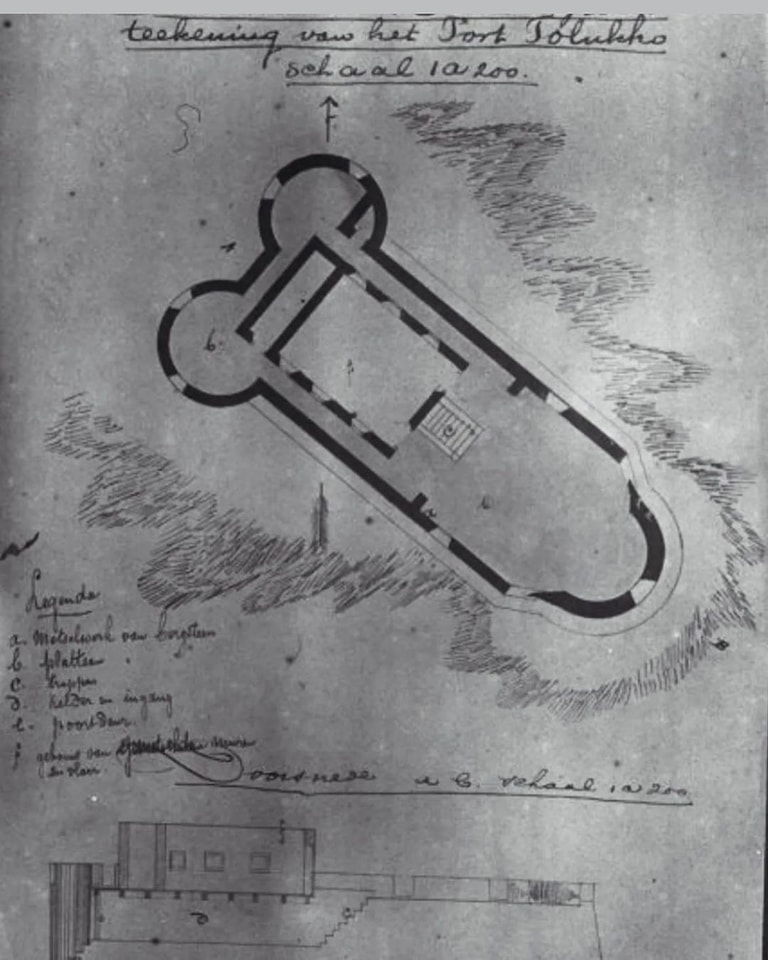 teekening van het Fort Tolukko
schaal 1 a 200.
b.
c
e
Legenda
a. Metselwerk van bergsteen
b. platten "
c. trappen
d. kelder en ingang
e. poortdeur.
f gebouw van muren
en vloer.
Doorsnede a b. schaal 1 a 200
d
c